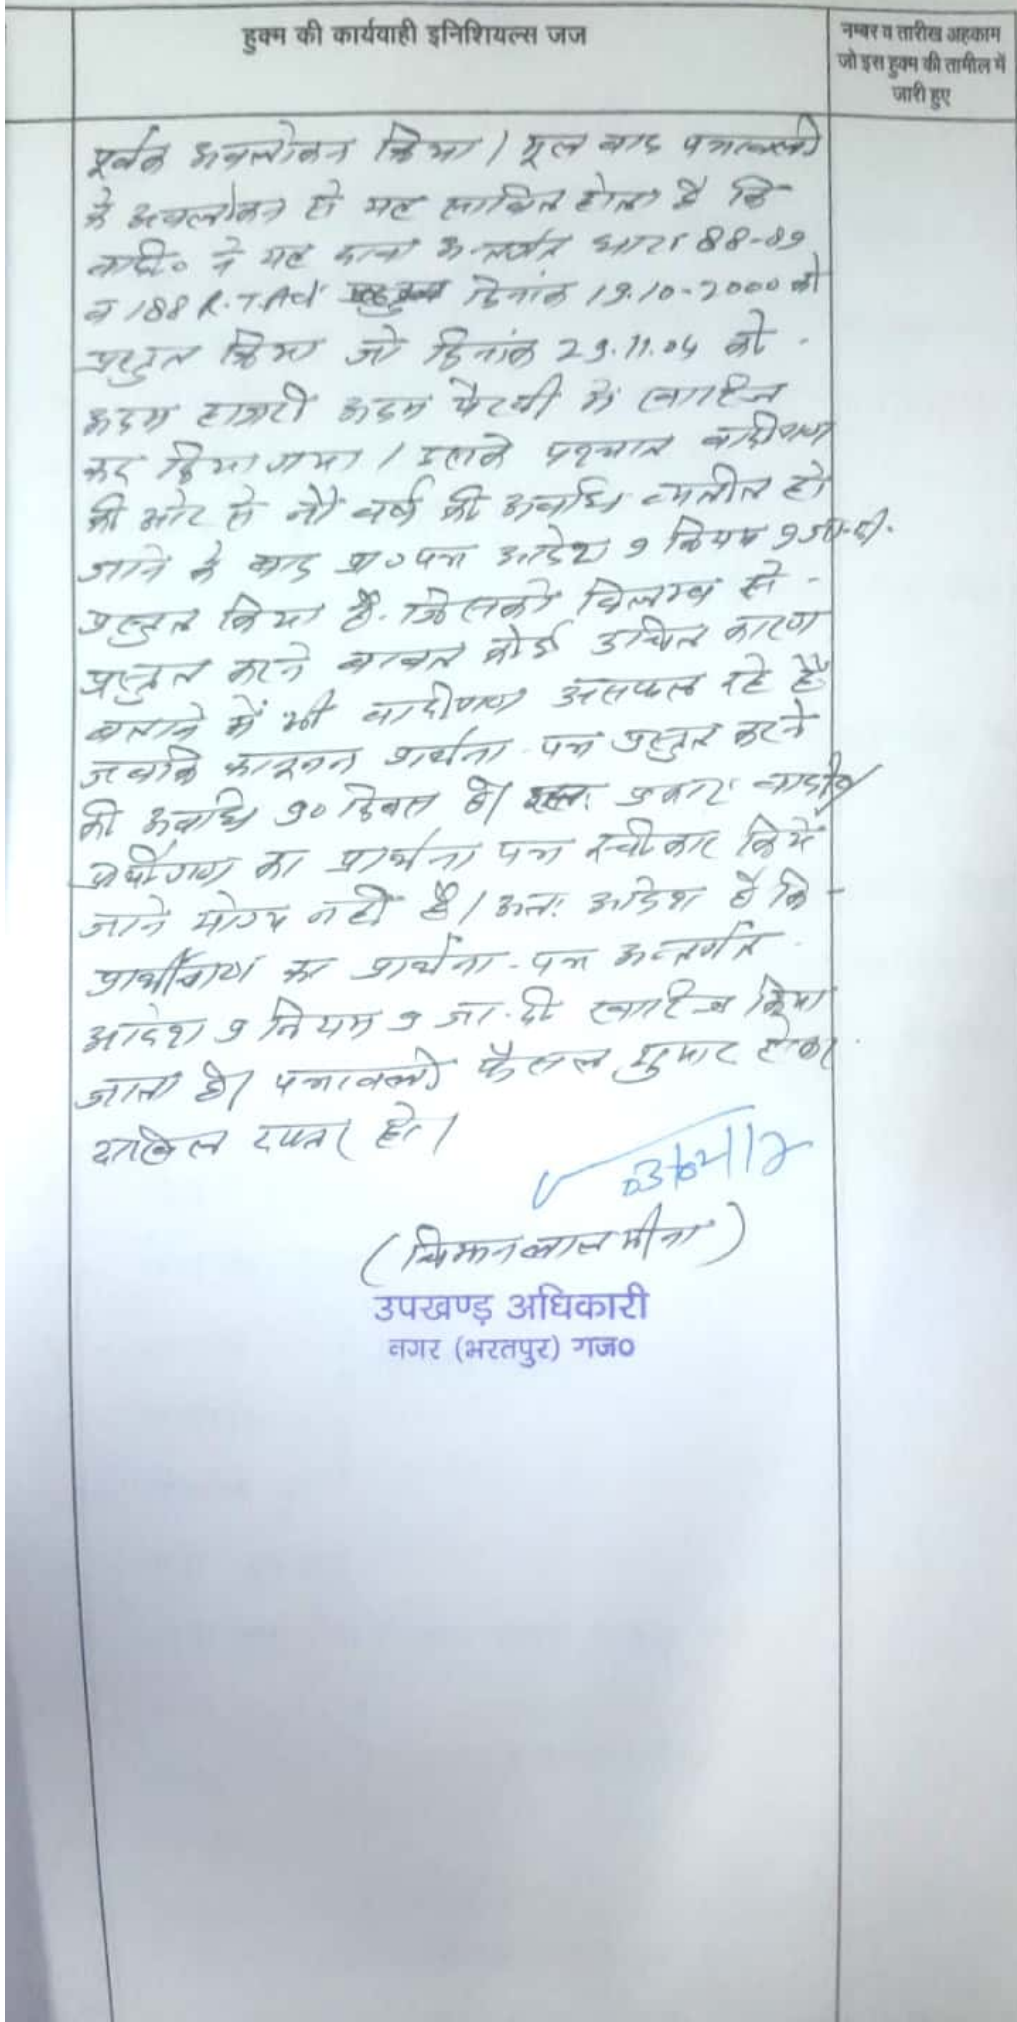 हुक्म की कार्यवाही इनिशियल्स जज
नम्बर व तारीख अहकाम
जो इस हुक्म की तामील में
जारी हुए
पूर्वक अवलोकन किया। मूल वाद पत्रावली
के अवलोकन से यह साबित होता है कि
वादी० ने यह दावा अन्तर्गत धारा 88-89
व 188 R.T.Act दिनांक 19.10-2000 को
प्रस्तुत किया जो दिनांक 29.11.04 को
अदम हाजरी अदम पैरवी में खारिज
कर दिया गया। इसके पश्चात वादीगण
की ओर से नौ वर्ष की अवधि व्यतीत हो
जाने के बाद प्रा०पत्र आदेश 9 नियम 9 जा.दी.
प्रस्तुत किया है. जिसको विलम्ब से
प्रस्तुत करने बाबत कोई उचित कारण
बताने में भी वादीगण असफल रहे है
जबकि कानूनन प्रार्थना-पत्र प्रस्तुत करने
की अवधि 30 दिवस है। इस प्रकार वादीगण
प्रार्थीगण का प्रार्थना पत्र स्वीकार किये
जाने योग्य नहीं है। अतः आदेश है कि
प्रार्थीगण का प्रार्थना-पत्र अन्तर्गत
आदेश 9 नियम 9 जा.दी खारिज किया
जाता है। पत्रावली फैसल शुमार होकर
दाखिल दफ्तर हो।
(चिमनलाल मीना)
उपखण्ड़ अधिकारी
नगर (भरतपुर) राज०